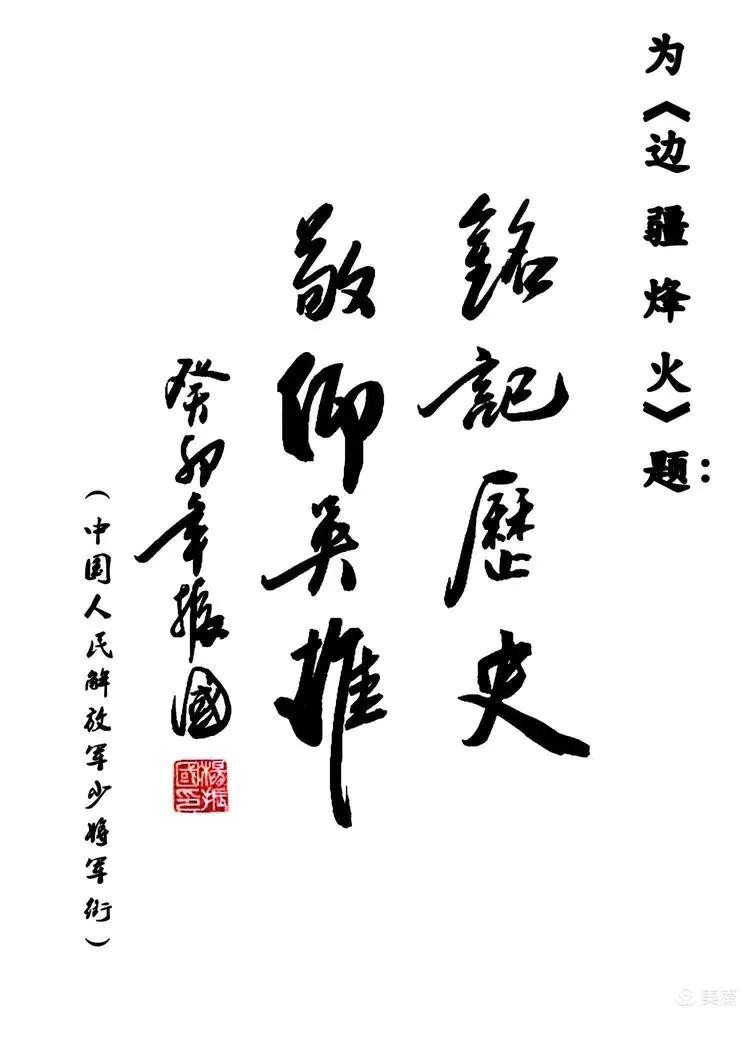 为《边疆烽火》题：
銘記歷史
敬仰英雄
癸卯年振國
楊振國印
（中国人民解放军少将军衔）
美篇